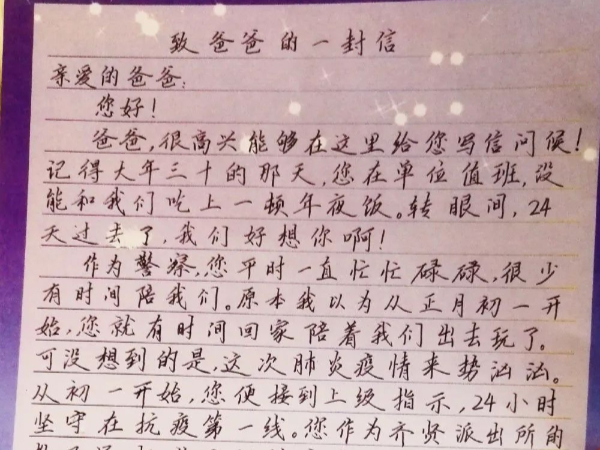 致爸爸的一封信
亲爱的爸爸:
您好!
爸爸,很高兴能够在这里给您写信问候!
记得大年三十的那天,您在单位值班,没
能和我们吃上一顿年夜饭。转眼间,24
天过去了,我们好想你啊!
作为警察,您平时一直忙忙碌碌,很少
有时间陪我们。原本我以为从正月初一开
始,您就有时间回家陪着我们出去玩了。
可没想到的是,这次肺炎疫情来势汹汹。
从初一开始,您便接到上级指示,24小时
坚守在抗疫第一线。您作为齐贤派出所的